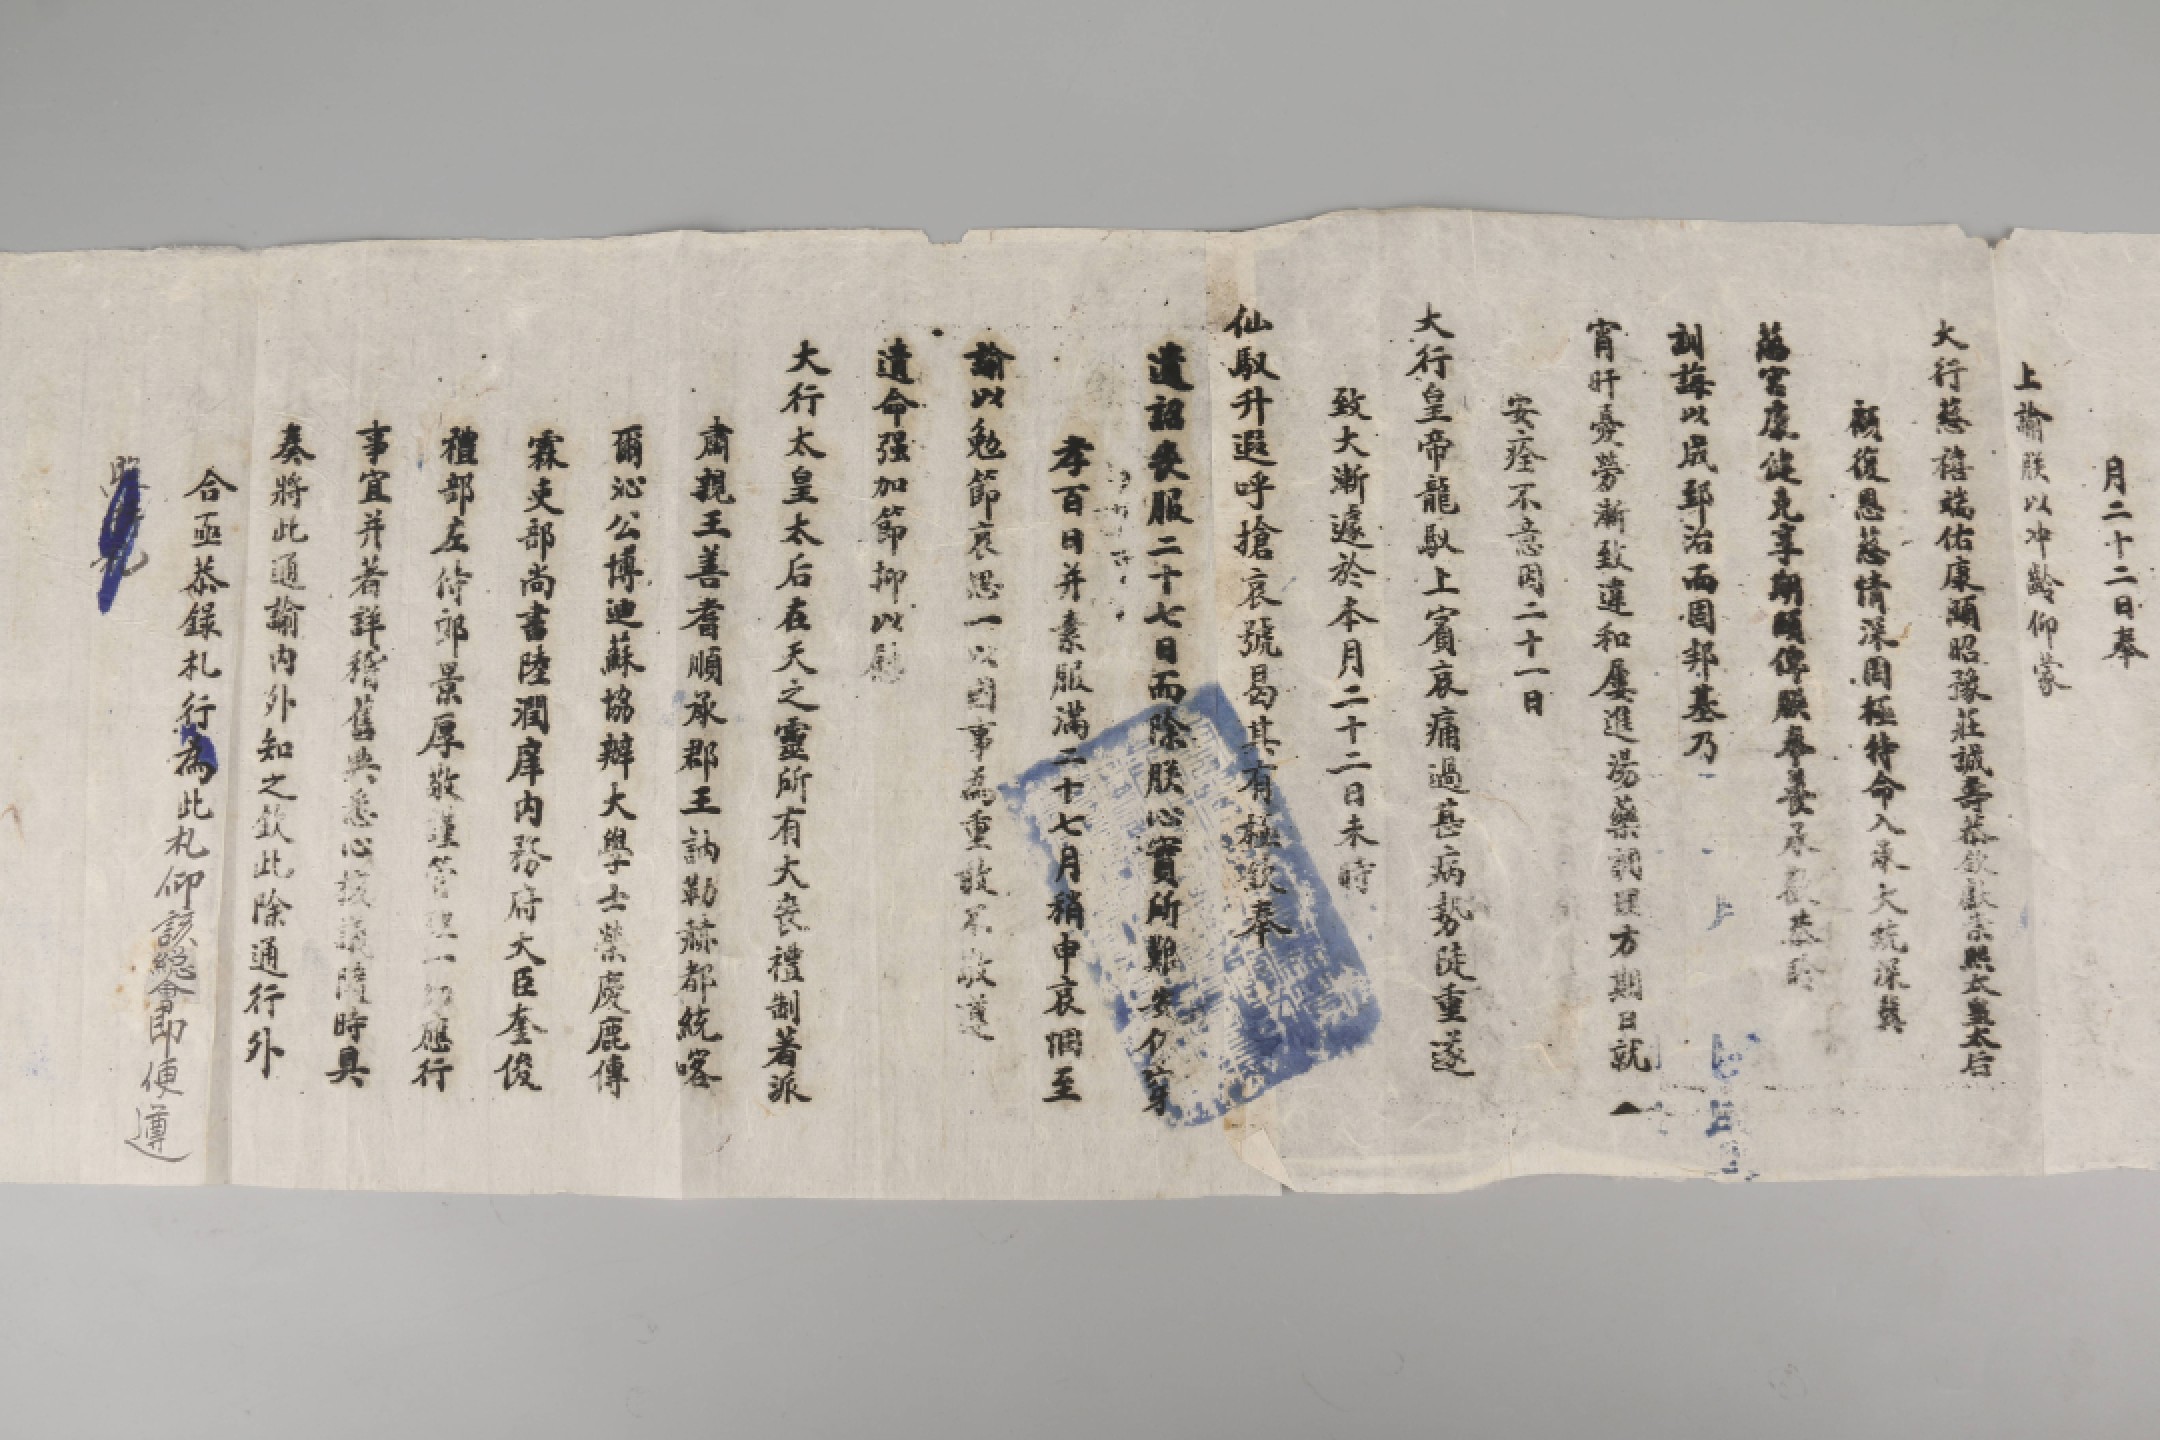 月二十二日奉
上諭朕以冲齡仰蒙
大行慈禧端佑康頤昭豫莊誠壽恭欽獻崇熙太皇太后
顧復恩慈情深罔極待命入承大統深冀
慈宮康健克享期頤俾朕奉養承歡恭聆
訓誨以成郅治而固邦基乃
宵旰憂勞漸致違和屢進湯藥調理方期日就
安痊不意因二十一日
大行皇帝龍馭上賓哀痛過甚病勢陡重遂
致大漸遽於本月二十二日未時
仙馭升遐呼搶哀號曷其有極欽奉
遺詔喪服二十七日而除朕心實所難安仍穿
孝百日并素服滿二十七月稍申哀悃至
諭以勉節哀思一以國事為重敢不敬遵
遺命强加節抑以慰
大行太皇太后在天之靈所有大喪禮制著派
肅親王善耆順承郡王訥勒赫都統喀
爾沁公博迪蘇協辦大學士榮慶鹿傳
霖吏部尚書陸潤庠內務府大臣奎俊
禮部左侍郎景厚敬謹管理一切應行
事宜并著詳稽舊典悉心核議隨時具
奏將此通諭內外知之欽此除通行外
合亟恭錄札行為此札仰該總會即便遵
照